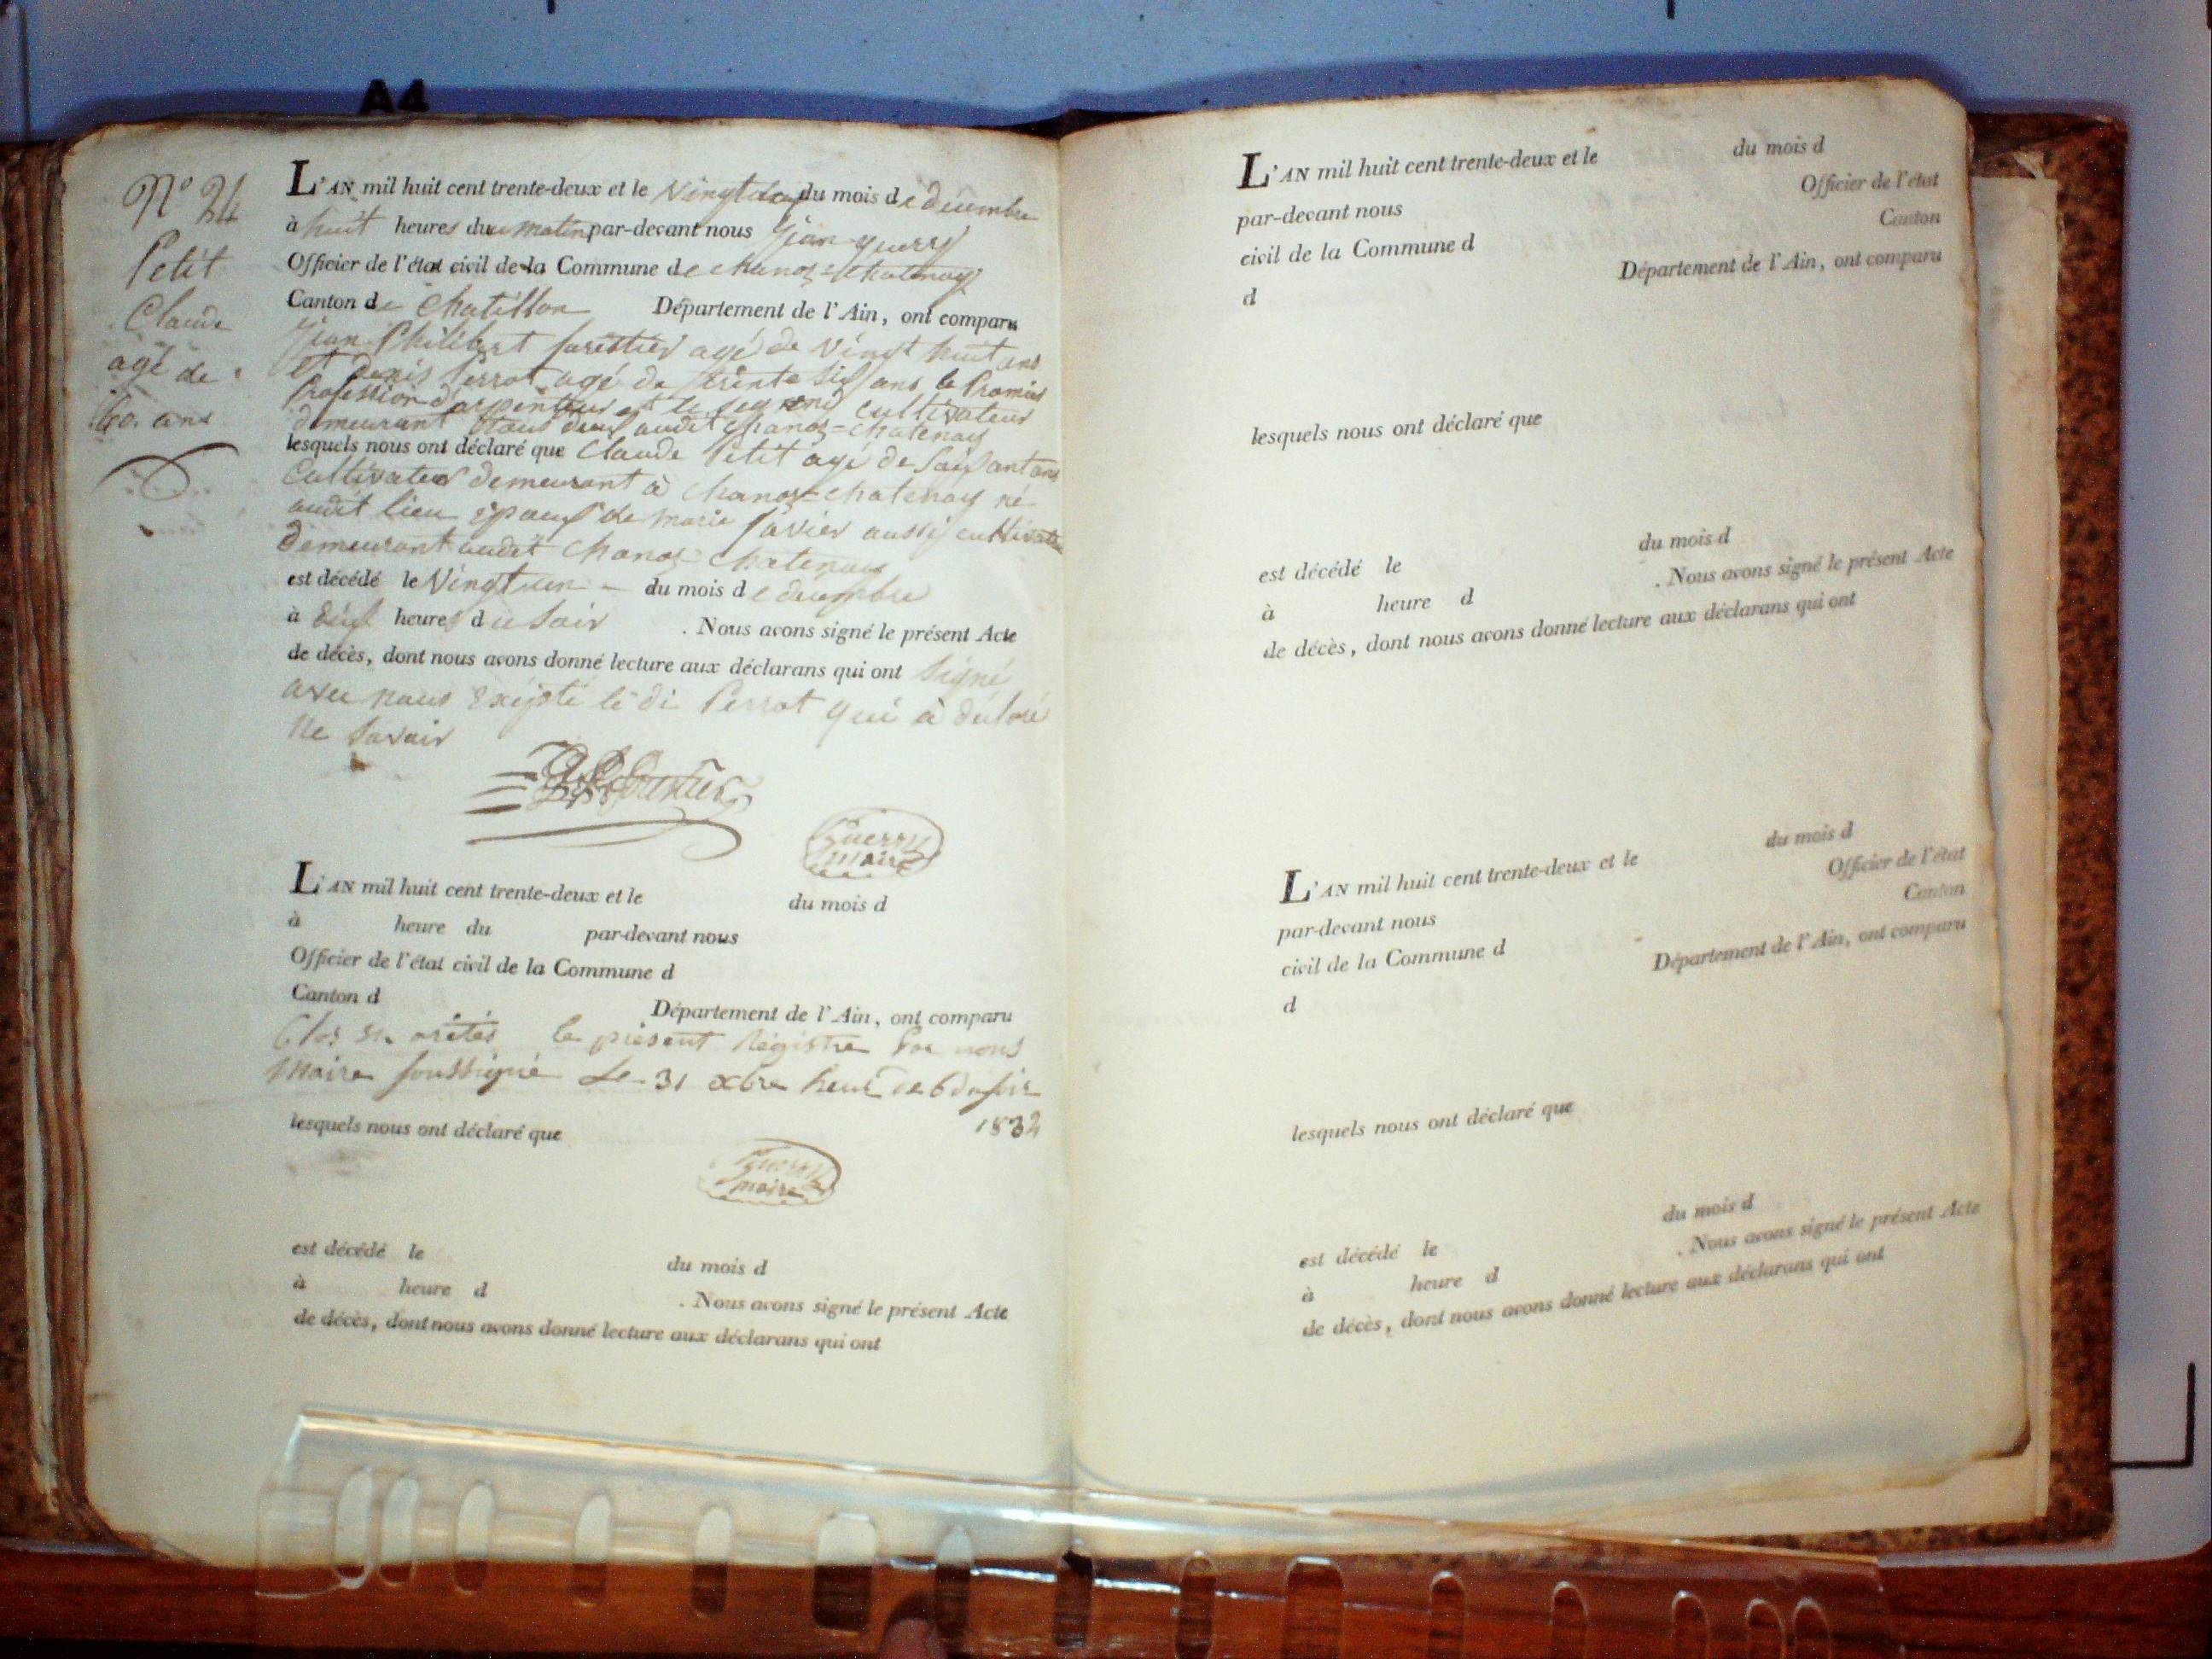 A4
N° 24
Petit
Claude
agé de
60. ans
L'AN mil huit cent trente-deux et le Vingt deux du mois de décembre
à huit heures du matin par-devant nous jean guerry
Officier de l'état civil de la Commune de chanoz=chatenay
Canton de Chatillon Département de l'Ain, ont comparu
jean Philibert forestier agé de vingt huit ans
et denis Perrot agé de trente six ans le Premier
Profession d'arpenteur et le segond cultivateur
demeurant tous deux audit chanoz=chatenay
lesquels nous ont déclaré que Claude Petit agé de soissant ans
Cultivateur demeurant à chanoz=chatenay né
audit lieu époux de marie javier aussi cultivatr
demeurant audit chanoz=chatenay
est décédé le Vingt un - du mois de décembre
à heures du soir . Nous avons signé le présent Acte
de décès, dont nous avons donné lecture aux déclarans qui ont signé
avec nous le di Perrot qui à déclaré
ne savoir
Guerry
maire
L'AN mil huit cent trente-deux et le du mois d
à heure du par-devant nous
Officier de l'état civil de la Commune d
Canton d Département de l'Ain, ont comparu
Clos et arêtés le présent Régistre Par nous
Maire soussigné Le 31 xbre heur de 6 du soir
1832
lesquels nous ont déclaré que
Guerry
maire
est décédé le du mois d
à heure d . Nous avons signé le présent Acte
de décès, dont nous avons donné lecture aux déclarans qui ont
L'AN mil huit cent trente-deux et le du mois d
par-devant nous Officier de l'état
civil de la Commune d Canton
d Département de l'Ain, ont comparu
lesquels nous ont déclaré que
est décédé le du mois d
à heure d . Nous avons signé le présent Acte
de décès, dont nous avons donné lecture aux déclarans qui ont
L'AN mil huit cent trente-deux et le du mois d
par-devant nous Officier de l'état
civil de la Commune d Canton
d Département de l'Ain, ont comparu
lesquels nous ont déclaré que
est décédé le du mois d
à heure d . Nous avons signé le présent Acte
de décès, dont nous avons donné lecture aux déclarans qui ont